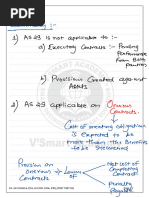 1) AS 29 is not applicable to :-
a) Executory Contracts :- Pending
Performance
from Both
parties
b) Provisions Created against
Assets
2) AS 29 applicable on Onerous
Contracts.
Cost of meeting obligation
is Expected to be
more than the Benefits
to be
Provision on
onerous
Contracts
Lower
Net cost of
Completing
Contracts
Penalty